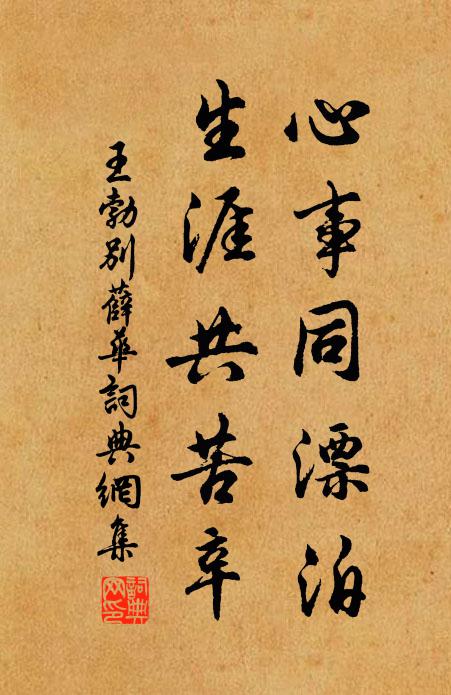 心事同漂泊
生涯共苦辛
王勃別薛華詞典網集
詞典網印